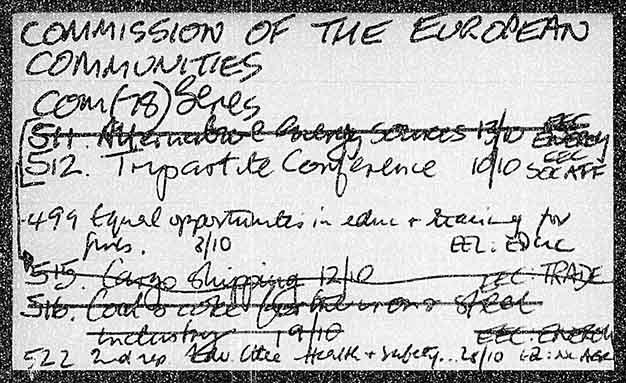 COMMISSION OF THE EUROPEAN
COMMUNITIES
COM(78) Series
511. Alternative Energy Sources 13/10 EEC ENERGY
512. Tripartite Conference 10/10 EEC SOC AFF
499 Equal opportunities in educ + training for
girls. 3/10 EEC: EDUC
515. Cargo Shipping 12/10 EEC TRADE
516. Coal & coke for the iron & steel
industry 19/10 EEC: ENERGY
522 2nd rep. Health + Safety... 28/10